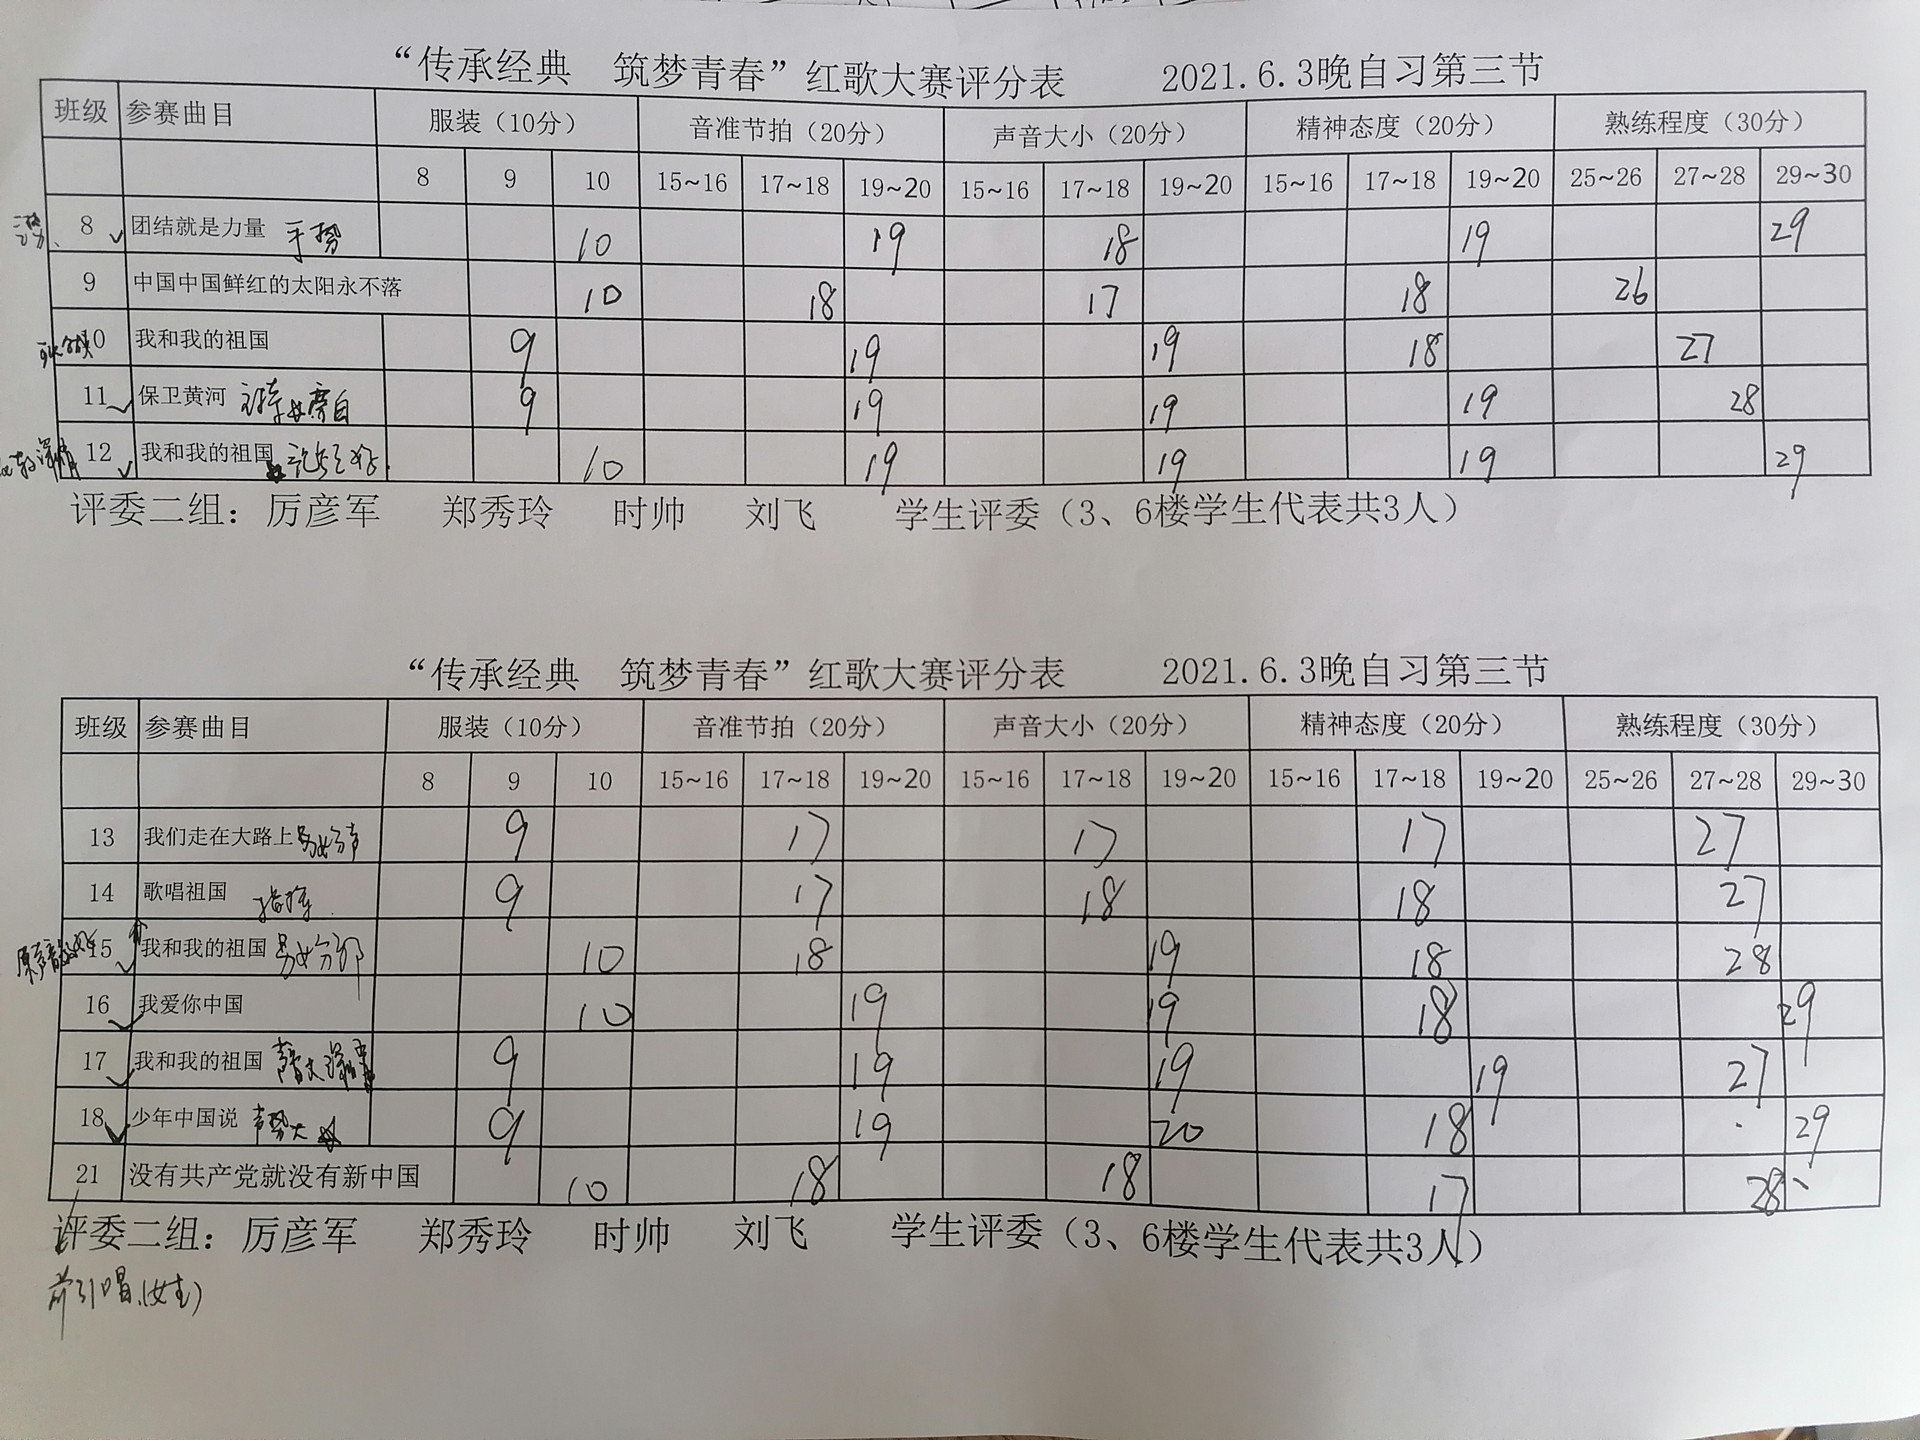 “传承经典　筑梦青春”红歌大赛评分表　2021.6.3晚自习第三节
班级 参赛曲目 服装（10分） 音准节拍（20分） 声音大小（20分） 精神态度（20分） 熟练程度（30分）
8 9 10 15~16 17~18 19~20 15~16 17~18 19~20 15~16 17~18 19~20 25~26 27~28 29~30
8 团结就是力量 手势 10 19 18 19 29
9 中国中国鲜红的太阳永不落 10 18 17 18 26
10 我和我的祖国 9 19 19 18 27
11 保卫黄河 旁白 9 19 19 19 28
12 我和我的祖国 10 19 19 19 29
评委二组：厉彦军　郑秀玲　时帅　刘飞　学生评委（3、6楼学生代表共3人）
“传承经典　筑梦青春”红歌大赛评分表　2021.6.3晚自习第三节
班级 参赛曲目 服装（10分） 音准节拍（20分） 声音大小（20分） 精神态度（20分） 熟练程度（30分）
8 9 10 15~16 17~18 19~20 15~16 17~18 19~20 15~16 17~18 19~20 25~26 27~28 29~30
13 我们走在大路上 男女分声 9 17 17 17 27
14 歌唱祖国 指挥 9 17 18 18 27
15 我和我的祖国 男女分部 10 18 19 18 28
16 我爱你中国 10 19 19 18 29
17 我和我的祖国 9 19 19 19 27
18 少年中国说 声势大 9 19 20 18 29
21 没有共产党就没有新中国 10 18 18 17 28
评委二组：厉彦军　郑秀玲　时帅　刘飞　学生评委（3、6楼学生代表共3人）
前引唱(女生)